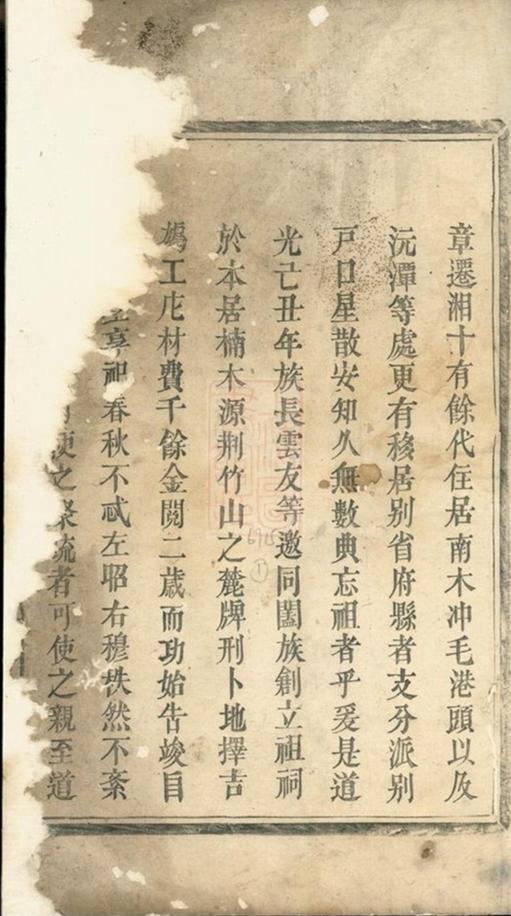 章遷湘十有餘代住居南木冲毛港頭以及
沅潭等處更有移居别省府縣者支分派别
戸口星散安知久無數典忘祖者乎爰是道
光己丑年族長雲友等邀同闔族創立祖祠
於本居楠木源荆竹山之麓牌刑卜地擇吉
鳩工庀材費千餘金閱二歲而功始告竣目
享祀春秋不忒左昭右穆秩然不紊
便之 疏者可使之親至道